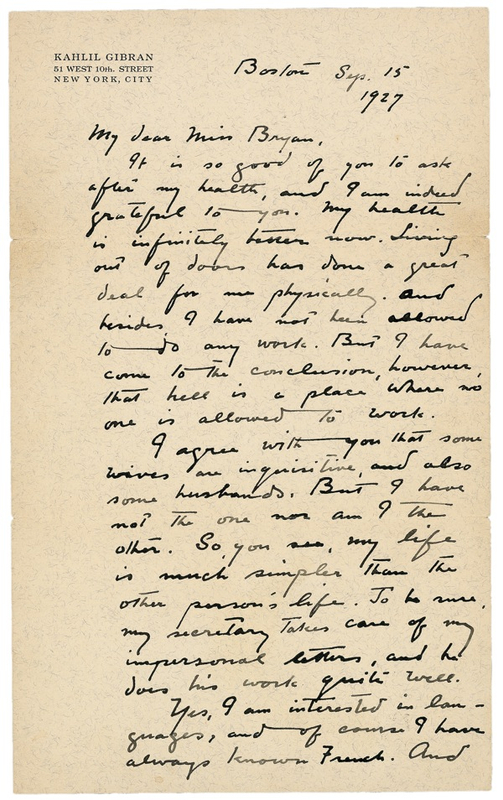 KAHLIL GIBRAN
51 WEST 10th. STREET
NEW YORK, CITY
Boston Sep. 15
1927
My dear Miss Bryan,
It is so good of you to ask
after my health, and I am indeed
grateful to you. My health
is infinitely better now. Living
out of doors has done a great
deal for me physically. And
besides I have not been allowed
to do any work. But I have
come to the conclusion, however,
that hell is a place where no
one is allowed to work.
I agree with you that some
wives are inquisitive, and also
some husbands. But I have
not the one nor am I the
other. So, you see, my life
is much simpler than the
other person's life. To be sure,
my secretary takes care of my
impersonal letters, and he
does his work quite well.
Yes, I am interested in lan-
guages; and of course I have
always known French. And